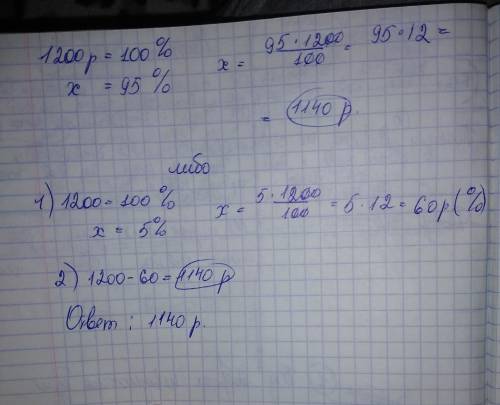 1200р = 100%
x = 95%
x = 95·1200/100 = 95·12 =
= 1140 р.
либо
1) 1200 = 100%
x = 5%
x = 5·1200/100 = 5·12 = 60р(%)
2) 1200-60 = 1140 р
Ответ: 1140 р.